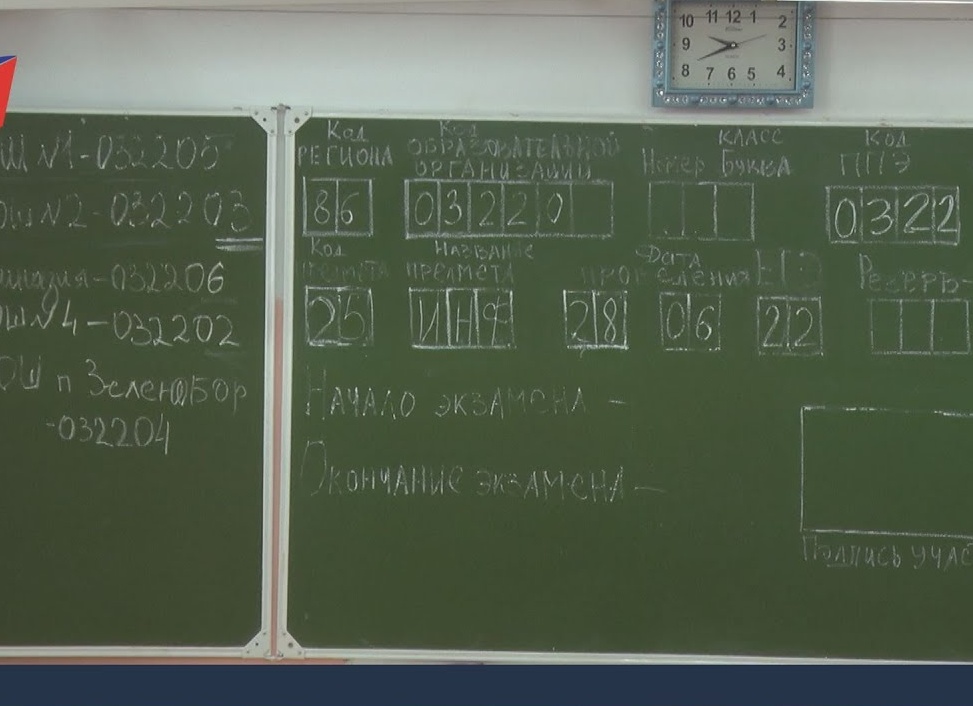 10 11 12 1 2
9 3
8 7 6 5 4
Ш №1-032205
ОШ №2-032203
-032206
ОШ №4-032202
ОШ п Зеленоборск
-032204
Код
РЕГИОНА
86
Код
ОБРАЗОВАТЕЛЬНОЙ
ОРГАНИЗАЦИИ
03220
КЛАСС
Номер Буква
Код
ППЭ
0322
Код
предмета
25
НАЗВАНИЕ
ПРЕДМЕТА
ИНФ
Дата
ПРОВЕДЕНИЯ ЕГЭ
28 06 22
Резерв-
НАЧАЛО ЭКЗАМЕНА -
ОКОНЧАНИЕ ЭКЗАМЕНА -
Подпись УЧАС